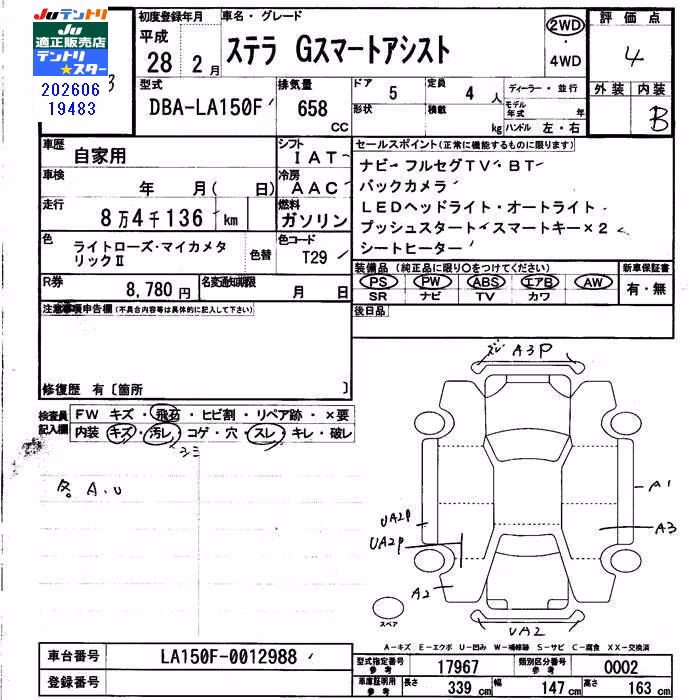 JUテントリ
JU
適正販売店
テントリ
★スター
202606
19483
3
初度登録年月
平成
28 2月
車名・グレード
ステラ Gスマートアシスト
2WD
・
4WD
評価点
4
外装 内装
B
型式
DBA-LA150F
排気量
658
CC
ドア
5
定員
4 人
形状
積載
kg
ディーラー・並行
モデル
年式 年
ハンドル 左・右
車歴
自家用
シフト
IAT
車検
年 月( 日)
冷房
AAC
走行
8万4千136 km
燃料
ガソリン
色
ライトローズ・マイカメタ
リックⅡ
色替
色コード
T29
R券
8,780円
名変通知期限
月 日
セールスポイント(正常に機能するものに限ります)
ナビ フルセグTV BT
バックカメラ
LEDヘッドライト・オートライト
プッシュスタート スマートキー×2
シートヒーター
装備品(純正品に限り○をつけてください)
PS PW ABS エアB AW
SR ナビ TV カワ
新車保証書
有・無
後日品
注意事項申告欄(不具合内容等は具体的に記入して下さい)
修復歴 有〔箇所 〕
検査員
記入欄
FW キズ・飛石・ヒビ割・リペア跡・×要
内装 キズ・汚レ・コゲ・穴・スレ・キレ・破レ
シミ
各A.U
ズレ A3P
A1
A3
UA2P
UA2P
A2
UA2
スペア
A-キズ E-エクボ U-凹み W-補修跡 S-サビ C-腐食 XX-交換済
車台番号
LA150F-0012988
登録番号
型式指定番号
参考
17967
類別区分番号
参考
0002
車庫証明用
参考
長さ
339 cm
幅
147 cm
高さ
163 cm